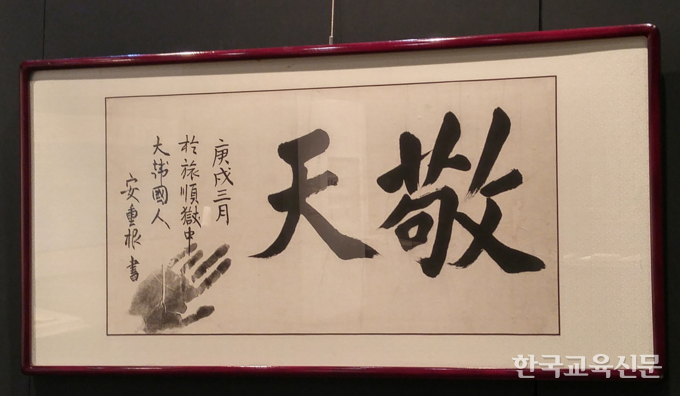 敬天
庚戌三月
於旅順獄中
大韓國人
安重根 書
한국교육신문